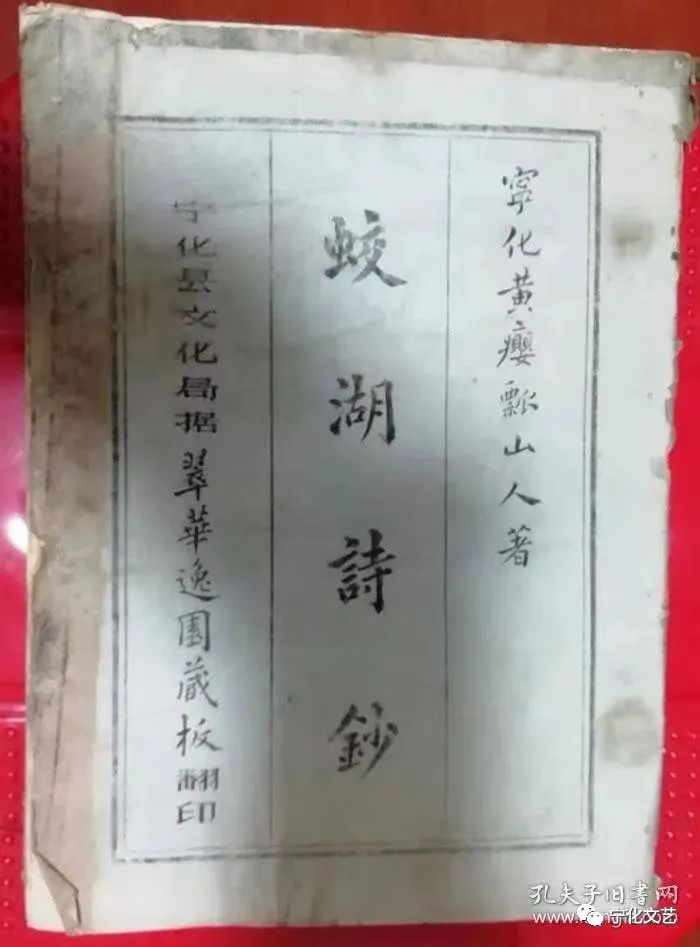 寧化黃癭瓢山人著
蛟湖詩鈔
宁化县文化局据翠華逸園藏板翻印
孔夫子旧书网
宁化文艺